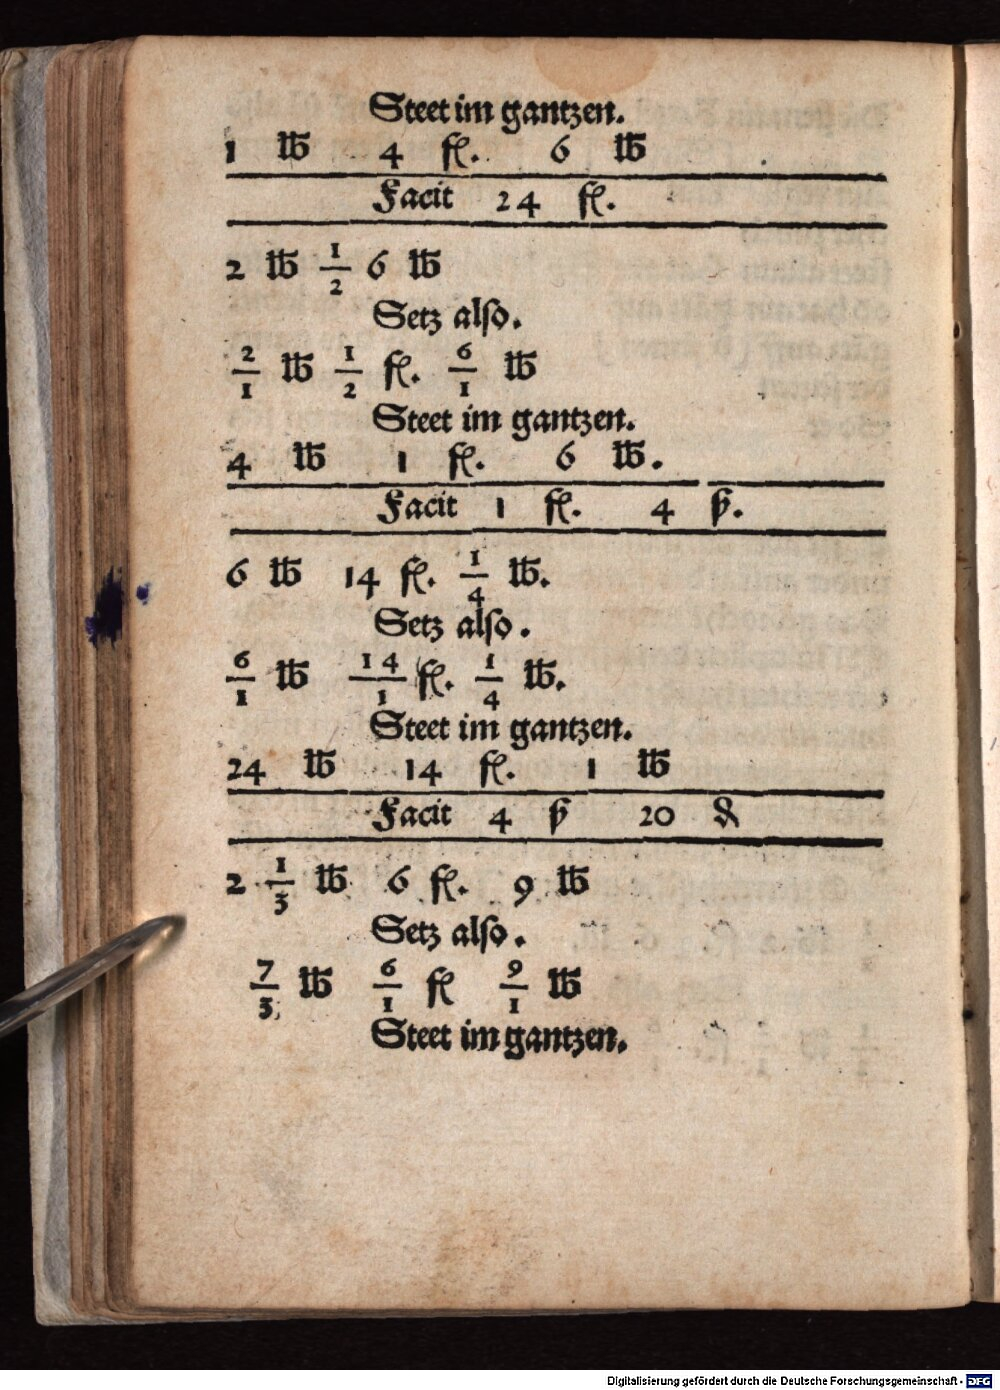 Steet im gantzen.
1 ℔ 4 fl. 6 ℔
Facit 24 fl.
2 ℔ 1/2 6 ℔
Setz also.
2/1 ℔ 1/2 fl. 6/1 ℔
Steet im gantzen.
4 ℔ 1 fl. 6 ℔.
Facit 1 fl. 4 ß.
6 ℔ 14 fl. 1/4 ℔.
Setz also.
6/1 ℔ 14/1 fl. 1/4 ℔.
Steet im gantzen.
24 ℔ 14 fl. 1 ℔
Facit 4 ß 20 ₰
2 1/3 ℔ 6 fl. 9 ℔
Setz also.
7/3 ℔ 6/1 fl 9/1 ℔
Steet im gantzen.
Digitalisierung gefördert durch die Deutsche Forschungsgemeinschaft - DFG